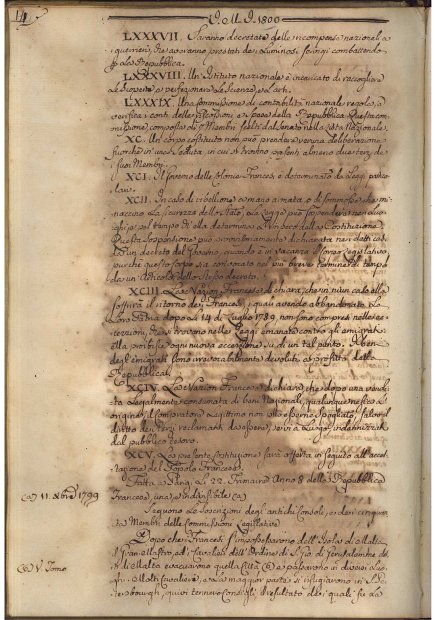 14
LXXXVII. Saranno decretate delle incompense nazionali a
guerrieri, che avranno prestati dei luminosi servigi combattendo
p la Repubblica.
LXXXVIII. Un Istituto nazionale è incaricato di raccogliere
le scoverte e perfezionare le scienze, e l'arti.
LXXXIX. Una Commissione di contabilità nazionale regola, e
verifica i conti delle riscossioni, e spese della Repubblica. Questa com
missione, composta di 7 Membri scelti dal Senato nella lista Nazionale.
XC. Un corpo costituito non può prendere veruna deliberazione
fuorchè in una seduta, in cui si trovino presenti almeno due terzi de
i suoi Membri.
XCI. Il governo delle Colonie Francesi è determinato da Leggi partico
lari.
XCII. In caso di ribellione a mano armata, o di sommosse che mi
naccino la sicurezza dello Stato, la Legge può sospendere nei luo
ghi, e pel tempo ch'ella determina, l'impero della Costituzione.
Questa sospensione può provisoriamente dichiararsi nei detti casi
da un decreto del Governo, quando è in vacanza il Corpo legislativo,
purchè questo corpo sia convocato nel più breve termine di tempo
da un articolo dello stesso decreto.
XCIII. La Nazion Francese dichiara, che in niun caso ella
soffrirà il ritorno dei Francesi, i quali avendo abbandonato la
loro Patria dopo il 14 di Luglio 1789, non sono compresi nelle ec
cezioni, che si trovano nelle Leggi emanate contro gli emigrati.
Ella proibisce ogni nuova eccezione su di un tal punto. I beni
degli emigrati sono irrevocabilmente devoluti a profitto della
Repubblica.
XCIV. La Nazion Francese dichiara, che dopo una vendita
legalmente consumata di beni Nazionali, qualunque ne sia l'
origine, il compratore legittimo non può esserne spogliato, salvo il
diritto dei terzi reclamanti da essere, se vi à luogo, indennizzati
dal pubblico tesoro.
XCV. La presente Costituzione sarà offerta in seguito all'accet
tazione del Popolo Francese.
Fatta a Parigi Le 22. Frimaire Anno 8 della Repubblica
Francese, una, e indivisibile (a)
(a) 11. Xbre 1799
Sieguono le soscrizioni degli antichi Consoli, e dei cinquanta
Membri delle Commissioni Legislative
Dopo che i Francesi s'impossessarono dell'Isola di Malta
il Gran Mastro ed i Cavalieri dell'Ordine di S. Gio: di Gerusalemme
di Malta evacuarono quella Città (b) e passarono in diversi Luo
(b) V Tomo
ghi. Molti Cavalieri, e la maggior parte si rifugiarono in S. Pie
tersbourgh, quivi tennero Consigli, il resultato dei quali fu la